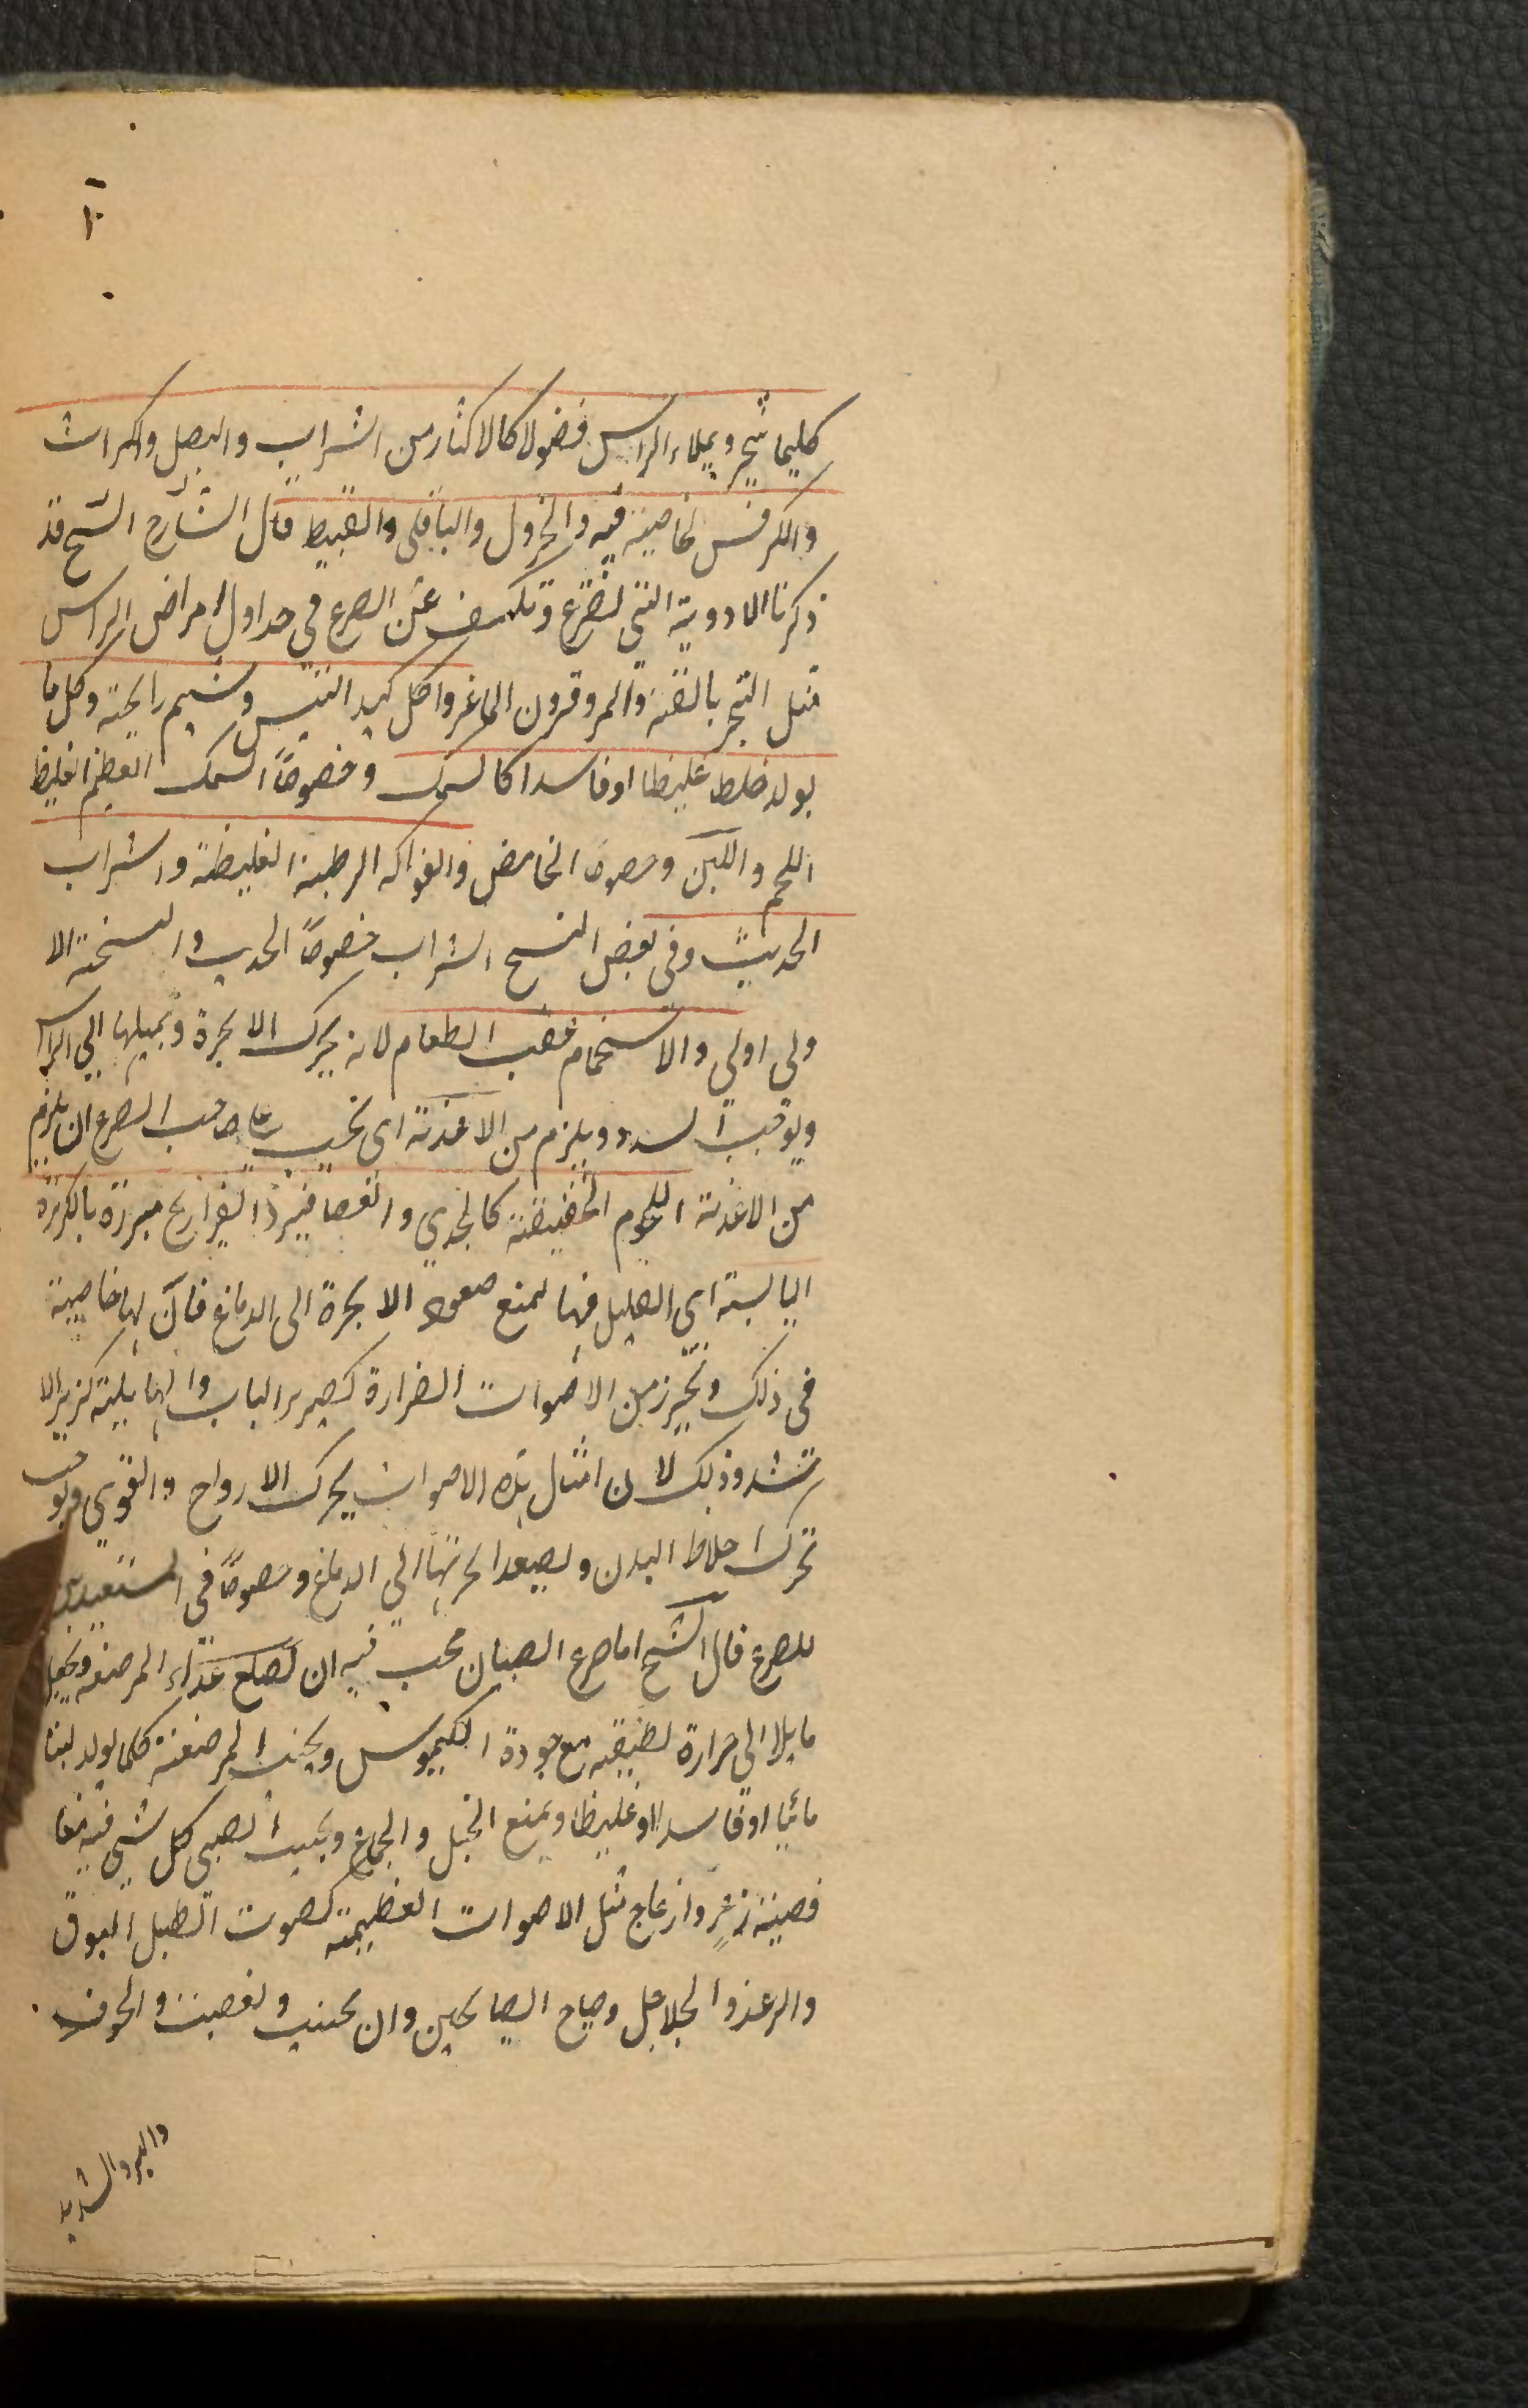 كليما يبخر ويملاء الراس فضولا كالاكثار من الشراب والبصل والكراث
والكرفس لخاصية فيه والخردل والباقلى والقبيط قال الشارح الشيخ قد
ذكرنا الادوية التى لتصرع وتكشف عن الصرع في جداول امراض الراس
مثل التبخر بالقنة والمر وقرون الماعز واكل كبد التيس وشيم رايحته وكل ما
يولد خلط غليظا اوفاسدا كالسمك وخصوصاً السمك العظيم الغليظ
اللحم واللبن وخصوصا الحامض والفواكه الرطبة الغليظة والشراب
الحديث وفى بعض النسخ الشراب خصوصاً الحديث والنسخة الا
ولى اولى والاستحمام عقب الطعام لانه يحرك الابخرة ويميلها الي الراس
ويوجب السدد ويلزم من الاغذية اى يجب على صاحب الصرع ان يلزم
من الاغذية اللحوم الخفيفة كالجدي والعصافير والفراريج مبرزة بالكزبرة
اليابسة اي القليل فيها لمنع صعود الابخرة الى الدماغ فان لها خاصية
فى ذلك ويحترز من الاصوات الضرارة كصرير الباب والهايلية كزير الا
سد وذلك لان امثال هذه الاصوات يحرك الارواح والقوي ويوجب
تحرك اخلاط البدن وتصعد ابخرتها الي الدماغ وخصوصاً فى المستعدين
للصرع قال الشيخ اما صرع الصبيان يجب فيه ان تصلح غذاء المرضعة ويجعل
مايلا الى حرارة لطيفة مع جودة الكيموس ويجنب المرضعة كلما يولد لبنا
مائيا اوفاسدا اوغليظا ويمنع الحبل والجماع ويجنب الصبي كل شي فيه مغا
فصية ذعر وازعاج مثل الاصوات العظيمة كصوت الطبل البوق
والرعد والجلاجل وصياح الصايحين وان يجنب والغضب والخوف
والبرد الشديد